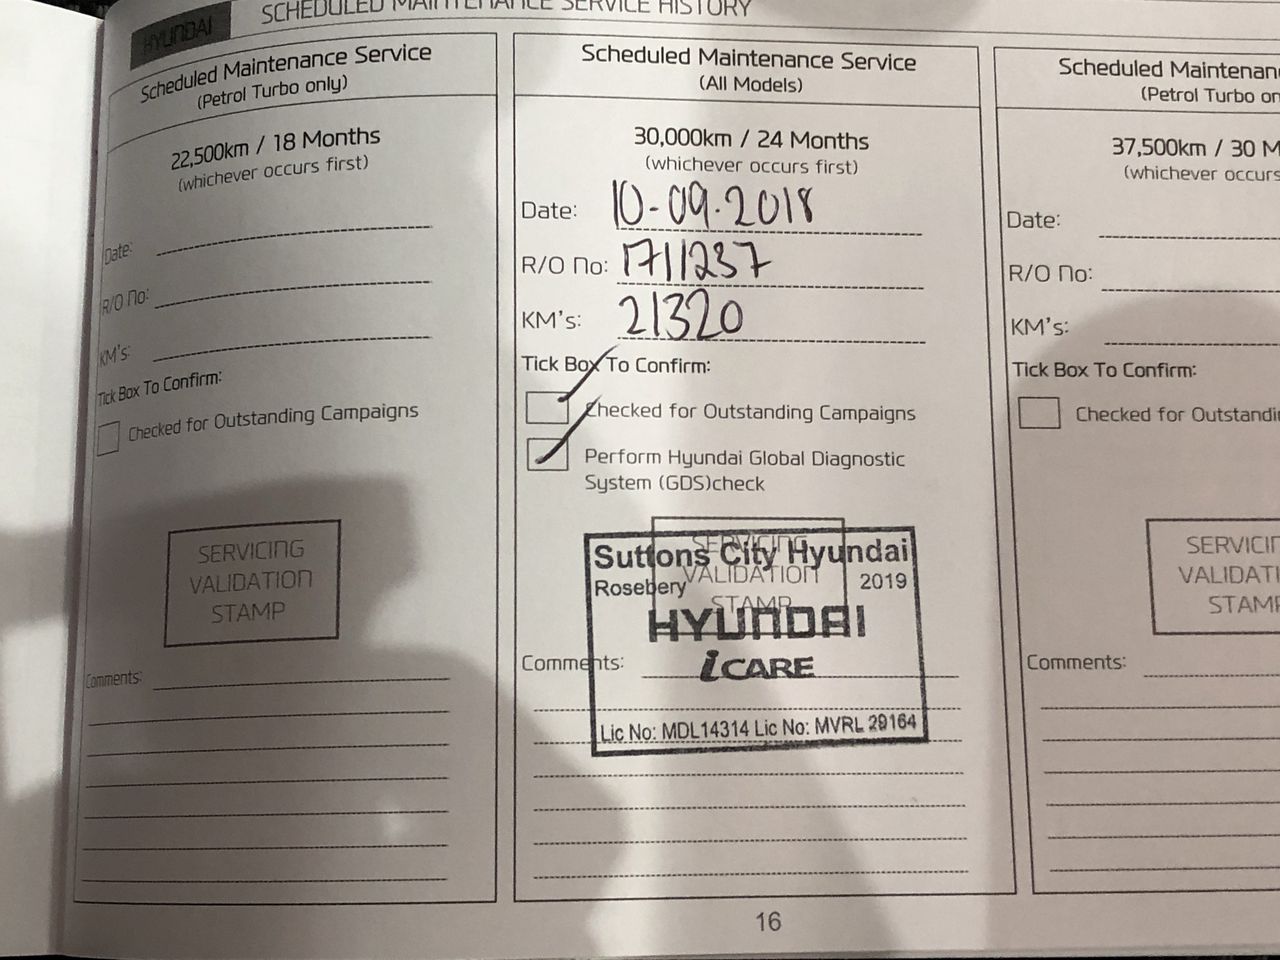 HYUNDAI
SCHEDULED MAINTENANCE SERVICE HISTORY
Scheduled Maintenance Service
(Petrol Turbo only)
22,500km / 18 Months
(whichever occurs first)
Date:
R/O No:
KM's:
Tick Box To Confirm:
Checked for Outstanding Campaigns
SERVICING
VALIDATION
STAMP
Comments:
Scheduled Maintenance Service
(All Models)
30,000km / 24 Months
(whichever occurs first)
Date: 10-09.2018
R/O No: 1711237
KM's: 21320
Tick Box To Confirm:
Checked for Outstanding Campaigns
Perform Hyundai Global Diagnostic
System (GDS)check
SERVICING
VALIDATION
STAMP
Suttons City Hyundai
Rosebery 2019
HYUNDAI
iCARE
Lic No: MDL14314 Lic No: MVRL 29164
Comments:
Scheduled Maintenan
(Petrol Turbo on
37,500km / 30 M
(whichever occurs
Date:
R/O No:
KM's:
Tick Box To Confirm:
Checked for Outstandi
SERVICIN
VALIDATI
STAMP
Comments:
16